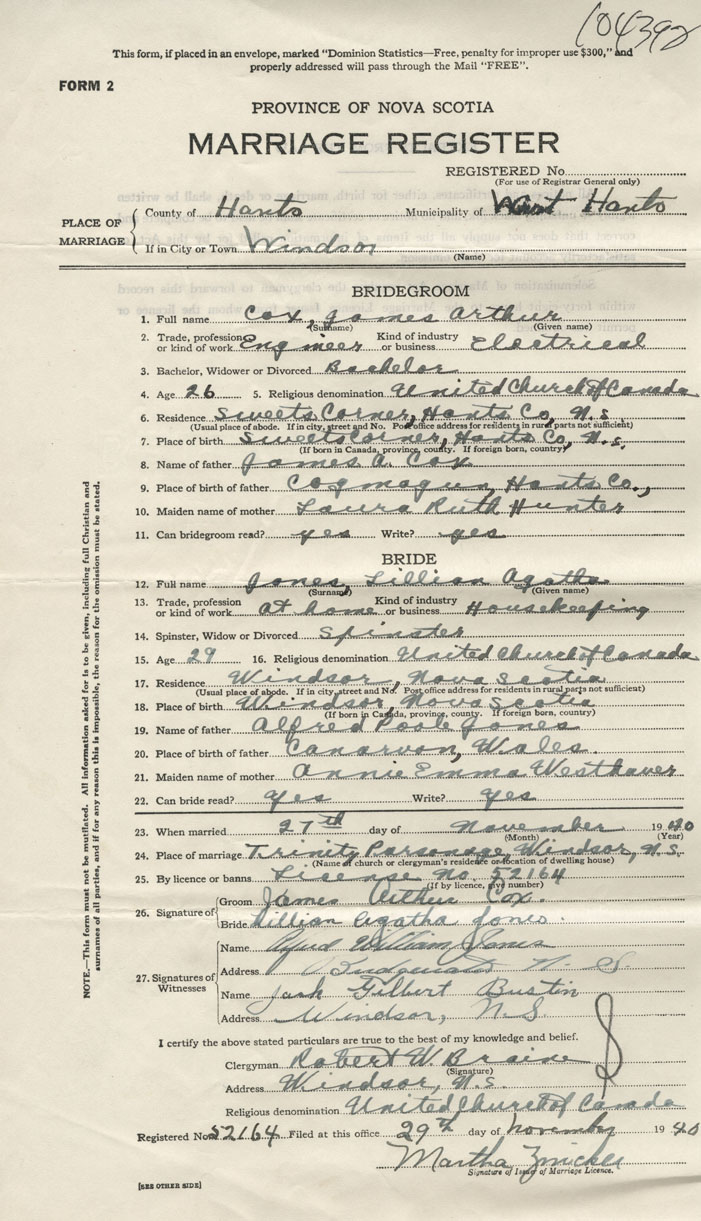 104392
This form, if placed in an envelope, marked "Dominion Statistics—Free, penalty for improper use $300," and
properly addressed will pass through the Mail "FREE".
FORM 2
PROVINCE OF NOVA SCOTIA
MARRIAGE REGISTER
REGISTERED No.
(For use of Registrar General only)
PLACE OF MARRIAGE
County of Hants Municipality of West Hants
If in City or Town Windsor
(Name)
BRIDEGROOM
1. Full name Cox, James Arthur
(Surname) (Given name)
2. Trade, profession or kind of work Engineer Kind of industry or business Electrical
3. Bachelor, Widower or Divorced Bachelor
4. Age 26 5. Religious denomination United Church of Canada
6. Residence Sweets Corner, Hants Co, N.S.
(Usual place of abode. If in city, street and No. Post office address for residents in rural parts not sufficient)
7. Place of birth Sweets Corner, Hants Co, N.S.
(If born in Canada, province, county. If foreign born, country)
8. Name of father James A. Cox
9. Place of birth of father Cogmagun, Hants Co.,
10. Maiden name of mother Laura Ruth Hunter
11. Can bridegroom read? yes Write? yes
BRIDE
12. Full name Jones, Lillian Agatha
(Surname) (Given name)
13. Trade, profession or kind of work at home Kind of industry or business Housekeeping
14. Spinster, Widow or Divorced Spinster
15. Age 29 16. Religious denomination United Church of Canada
17. Residence Windsor, Nova Scotia
(Usual place of abode. If in city, street and No. Post office address for residents in rural parts not sufficient)
18. Place of birth Windsor, Nova Scotia
(If born in Canada, province, county. If foreign born, country)
19. Name of father Alfred Poole Jones
20. Place of birth of father Canarvon, Wales.
21. Maiden name of mother Annie Emma Westhaver
22. Can bride read? yes Write? yes
23. When married 27th day of November 1940
(Month) (Year)
24. Place of marriage Trinity Parsonage, Windsor, N.S.
(Name of church or clergyman's residence or location of dwelling house)
25. By licence or banns License No. 52164
(If by licence, give number)
26. Signature of
Groom James Arthur Cox.
Bride Lillian Agatha Jones.
27. Signatures of Witnesses
Name William Jones
Address N. S.
Name Jack Gilbert Bustin
Address Windsor, N.S.
I certify the above stated particulars are true to the best of my knowledge and belief.
Clergyman Robert W. Braine
(Signature)
Address Windsor, N.S.
Religious denomination United Church of Canada
Registered No. 52164 Filed at this office 29th day of November 1940
Martha
Signature of Issuer of Marriage Licence.
[SEE OTHER SIDE]
NOTE.—This form must not be mutilated. All information asked for is to be given, including full Christian and
surnames of all parties, and if for any reason this is impossible, the reason for the omission must be stated.